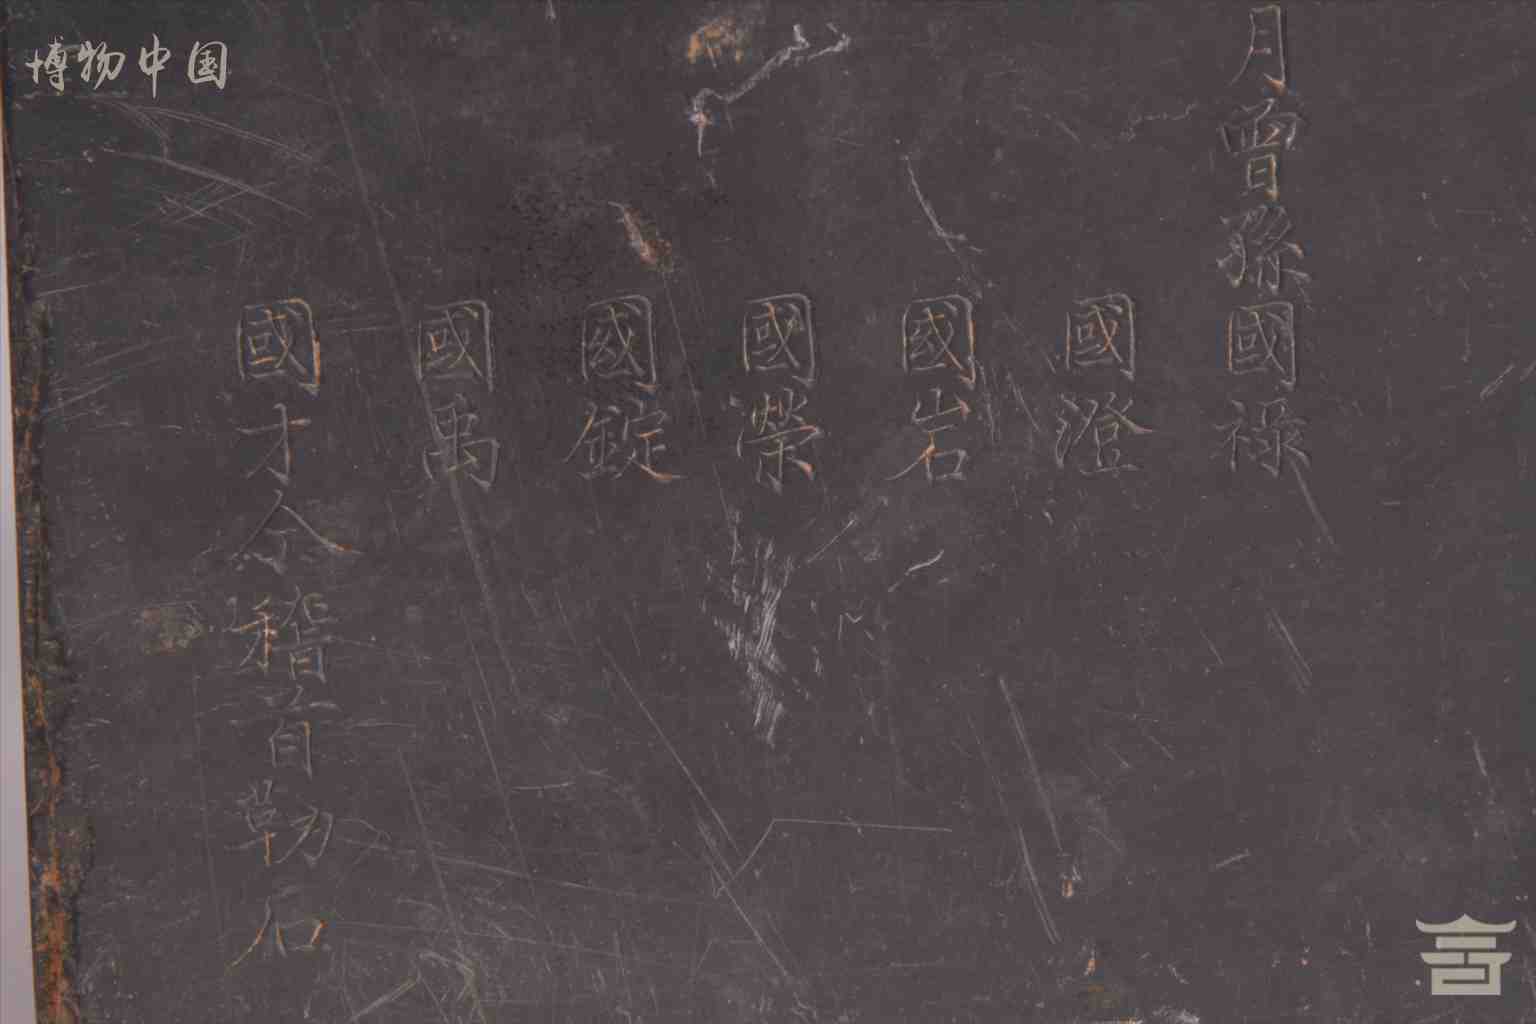 博物中国
月曾孫國祿
國澄
國岩
國榮
國錠
國禹
國才仝稽首勒石